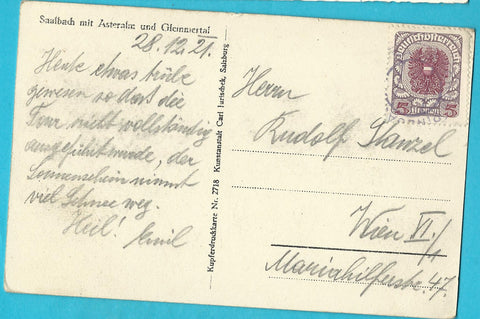 Saalbach mit Asteralm und Glemmertal
28.12.21.
Heute etwas trübe
gewesen so dass die
Tour nicht vollständig
ausgeführt wurde, der
Sonnenschein nimmt
viel Schnee weg.
Heil! Emil
Kupferdruckkarte Nr. 2718 Kunstanstalt Carl Jurischek, Salzburg
Deutschösterreich
5 Kronen 5
Herrn
Rudolf Stanzel
Wien VI/1
Mariahilferstr. 47.